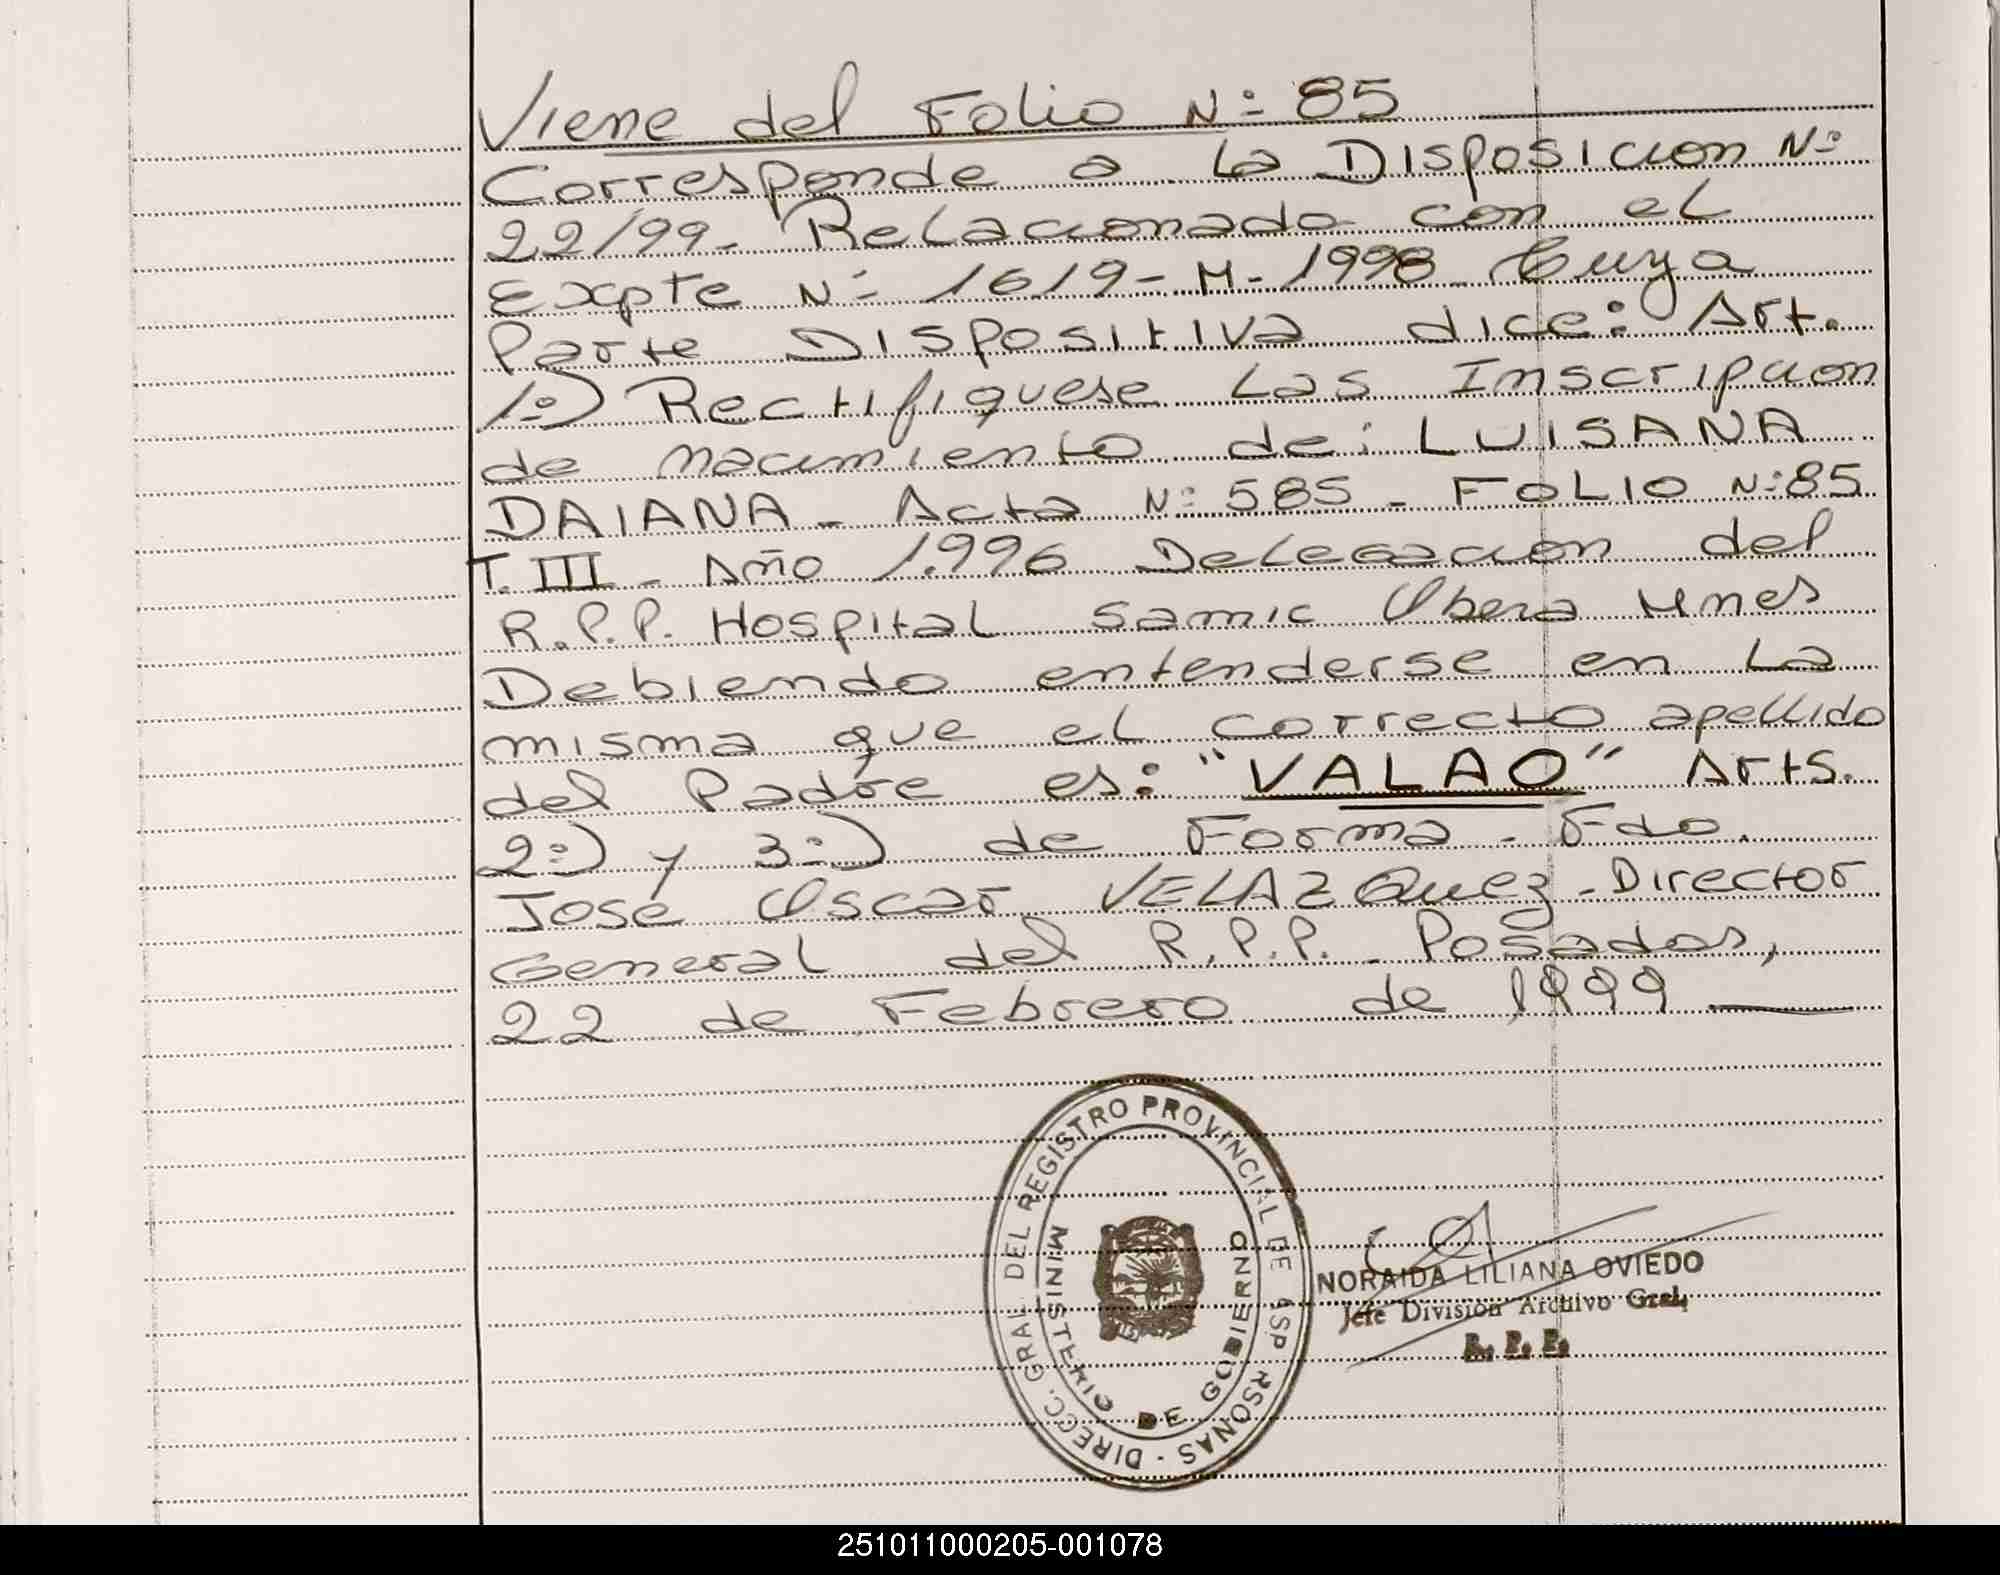 Viene del Folio N: 85
Corresponde a la Disposicion N:
22/99- Relacionado con el
Expte N: 1619-M-1998 Cuya
Parte Dispositiva dice: Art.
1:) Rectifiquese Las Inscripcion
de nacimiento de: LUISANA
DAIANA - Acta N: 585 - FOLIO N:85
T. III - Año 1.996 Delegacion del
R.P.P. Hospital Samic Obera Mnes
Debiendo entenderse en La
misma que el correcto apellido
del Padre es: "VALAO" Arts.
2:) y 3:) de Forma - Fdo.
Jose Oscar VELAZQuez - Director
General del R.P.P. Posadas,
22 de Febrero de 1999
DIRECC. GRAL DEL REGISTRO PROVINCIAL DE LAS PERSONAS
MINISTERIO DE GOBIERNO
NORAIDA LILIANA OVIEDO
Jefe División Archivo Gral.
R. P. P.
251011000205-001078